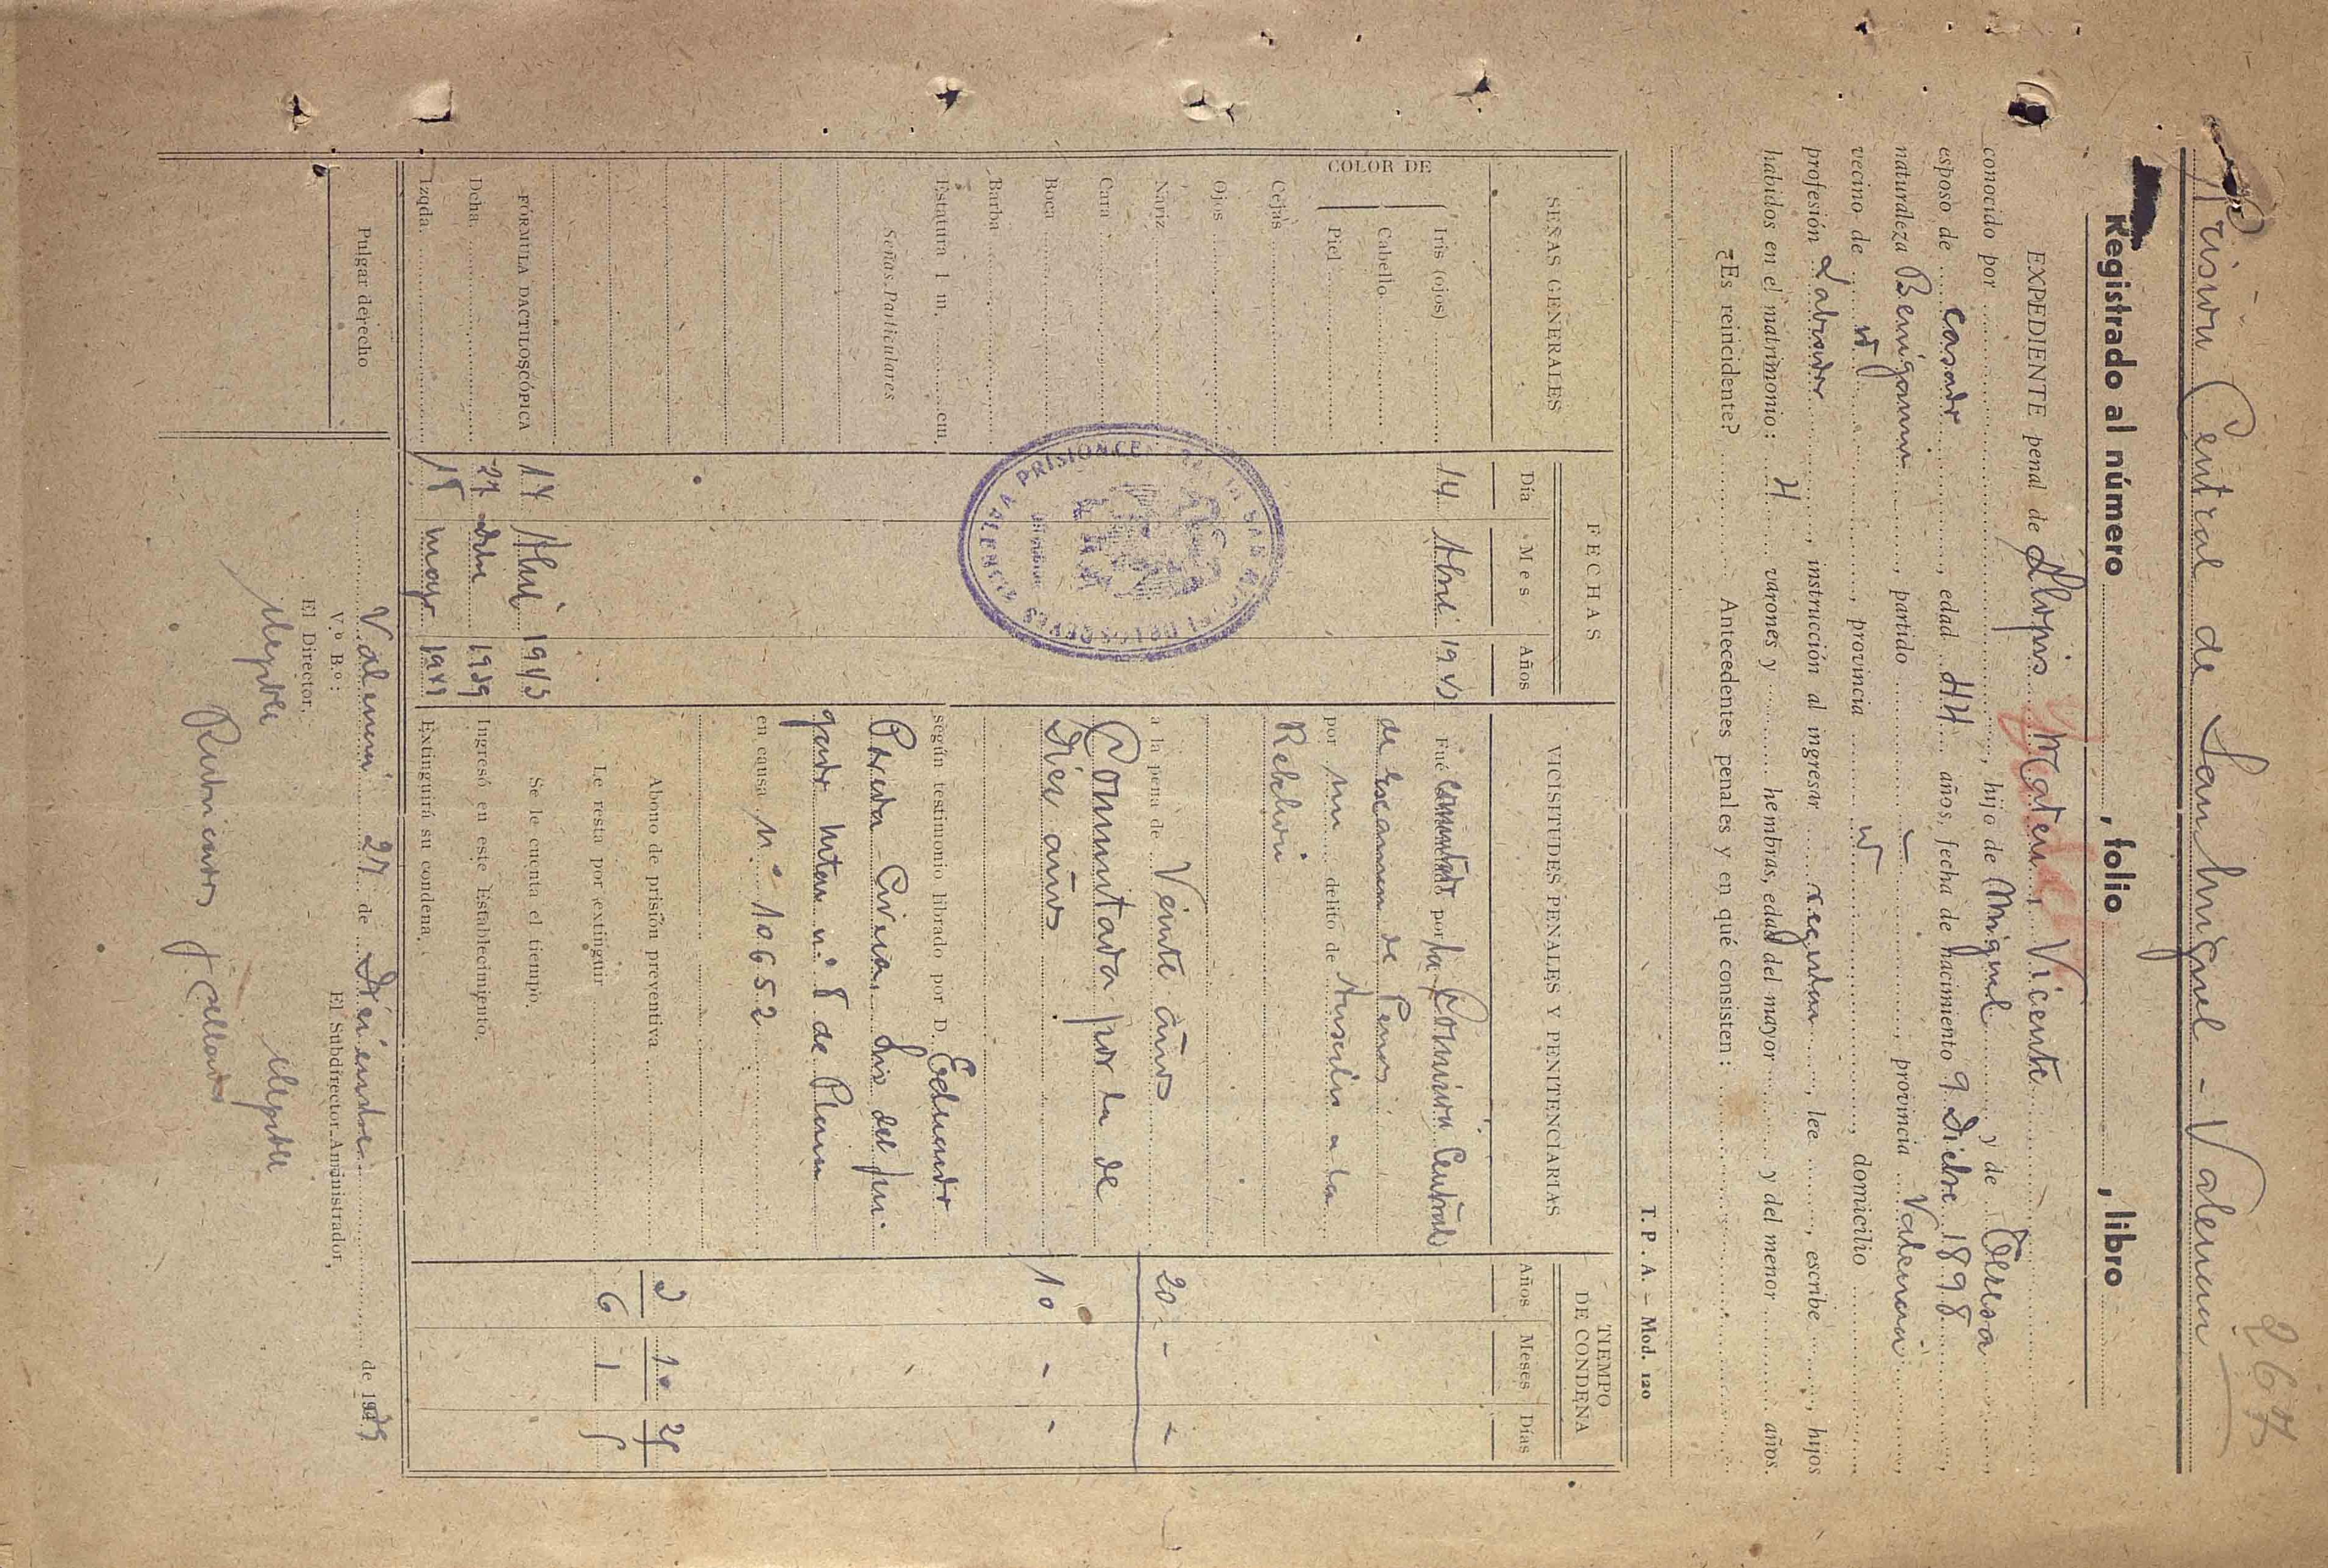 267
Prisión Central de San Miguel - Valencia
Registrado al número , folio , libro
EXPEDIENTE penal de Llopis Mateu, Vicente
conocido por , hijo de Miguel y de Teresa,
esposo de casado, edad 44 años, fecha de nacimiento 9 Dicbre 1898,
naturaleza Benigamin, partido , provincia Valencia,
vecino de id, provincia id, domicilio ,
profesión Labrador, instrucción al ingresar regular, lee , escribe , hijos
habidos en el matrimonio: 4 varones y hembras, edad del mayor y del menor años.
¿Es reincidente? Antecedentes penales y en qué consisten:
T. P. A. — Mod. 120
SEÑAS GENERALES
FECHAS
Día Mes Años
VICISITUDES PENALES Y PENITENCIARIAS
TIEMPO DE CONDENA
Años Meses Días
COLOR DE
Iris (ojos)
Cabello
Piel
Cejas
Ojos
Nariz
Cara
Boca
Barba
Estatura 1 m. cm.
Señas Particulares
FÓRMULA DACTILOSCÓPICA
Dcha.
Izqda.
Pulgar derecho
14 Abril 1943 Fué conmutado por la Comisión Central
de Examen de Penas
por un delito de Auxilio a la
Rebelión
a la pena de Veinte años 20 - -
Conmutada por la de
Diez años 10 - -
según testimonio librado por D. Eduardo
en causa nº 10652
Abono de prisión preventiva 3 10 25
Le resta por extinguir 6 1 5
17 Abril 1943 Se le cuenta el tiempo.
27 dbre 1939 Ingresó en este Establecimiento.
18 mayo 1949 Extinguirá su condena.
PRISION CENTRAL DE SAN MIGUEL DE LOS REYES VALENCIA
Valencia 27 de Diciembre de 19
V.º B.º:
El Director,
El Subdirector-Administrador,
Ilegible
Ilegible
Rubricados y sellados